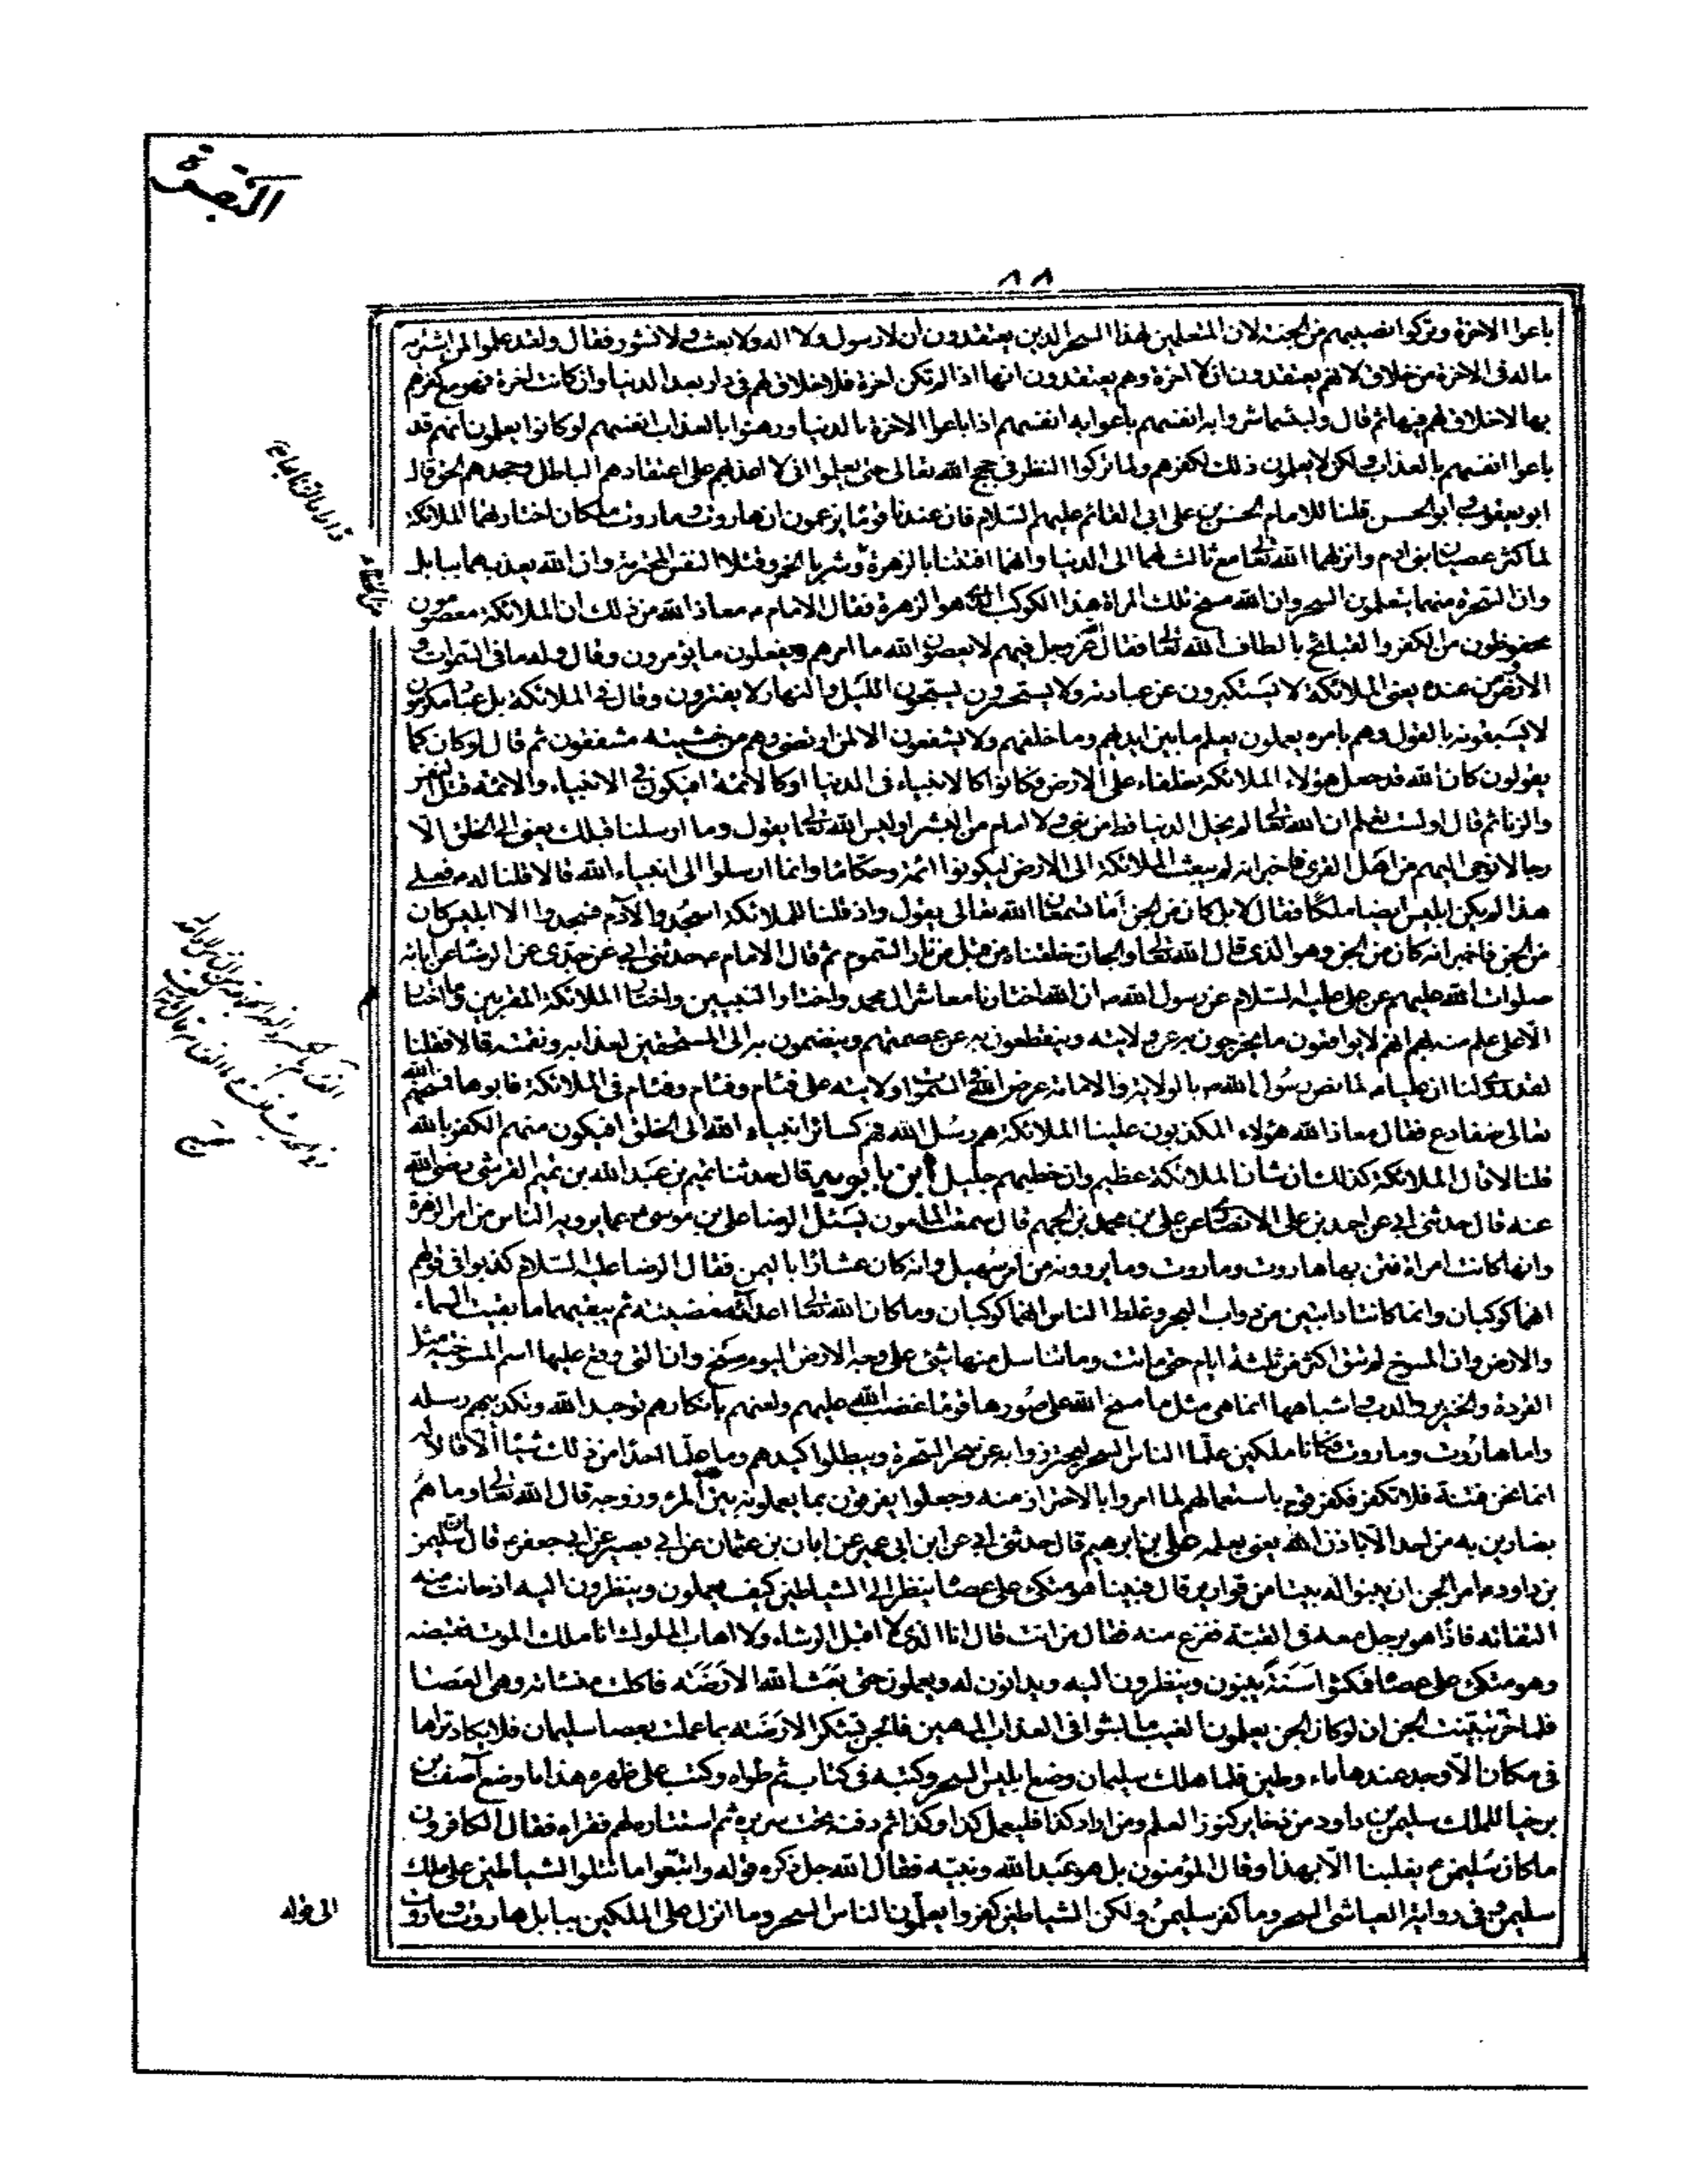 البقرة
٨٨
باعوا الاخرة وتركوا نصيبهم من الجنة لان المتعلمين لهذا السحر الذين يعتقدون ان لا رسول ولا اله ولا بعث ولا نشور فقال ولقد علموا لمن اشتريه
ماله فى الاخرة من خلاق لانهم يعتقدون ان لا اخرة وهم يعتقدون انها اذا لم تكن اخرة فلا خلاق لهم فى دار بعد الدنيا وان كانت اخرة فهو مع كفرهم
بها لا خلاق لهم فيها ثم قال ولبئسما شروا به انفسهم باعوا به انفسهم اذا باعوا الاخرة بالدنيا ورهنوا بالعذاب انفسهم لو كانوا يعلمون انهم قد
باعوا انفسهم بالعذاب ولكن لا يعلمون ذلك لكفرهم ولما تركوا النظر فى حجج الله تعالى حتى يعلموا انى لا اعذبهم على اعتقادهم الباطل وجحدهم الحق قال
ابو يعقوب وابو الحسن قلنا للامام الحسن بن على ابى القائم عليهم السلام فان عندنا قوما يزعمون ان هاروت وماروت ملكان اختارتهما الملائكة
لما كثر عصيان بنى ادم وانزلهما الله تعالى مع ثالث لهما الى الدنيا وانهما افتتنا بالزهرة وشربا الخمر وقتلا النفس المحترمة وان الله يعذبهما ببابل
وان السحرة منهما يتعلمون السحر وان الله مسخ تلك المراة هذا الكوكب الذى هو الزهرة فقال الامام ع معاذ الله من ذلك ان الملائكة معصومون
محفوظون من الكفر والقبائح بالطاف الله تعالى فقال عز وجل فيهم لا يعصون الله ما امرهم ويفعلون ما يؤمرون وقال وله ما فى السموات و
الارض ومن عنده يعنى الملائكة لا يستكبرون عن عبادته ولا يستحسرون يسبحون الليل والنهار لا يفترون وقال فى الملائكة بل عباد مكرمون
لا يسبقونه بالقول وهم بامره يعملون يعلم ما بين ايديهم وما خلفهم ولا يشفعون الا لمن ارتضى وهم من خشيته مشفقون ثم قال لو كان كما
يقولون كان الله قد جعل هؤلاء الملائكة خلفاء على الارض وكانوا كالانبياء فى الدنيا او كالائمة افيكون فى الانبياء والائمة قتل النفس
والزنا ثم قال اولست تعلم ان الله تعالى لم يخل الدنيا قط من نبى ولا امام من البشر اوليس الله تعالى يقول وما ارسلنا قبلك يعنى الى الخلق الا
رجالا نوحى اليهم من اهل القرى فاخبر انه لم يبعث الملائكة الى الارض ليكونوا ائمة وحكاما وانما ارسلوا الى انبياء الله قالا قلنا له ع فعلى
هذا لم يكن ابليس ايضا ملكا فقال لا بل كان من الجن اما تسمعان الله تعالى يقول واذ قلنا للملائكة اسجدوا لآدم فسجدوا الا ابليس كان
من الجن فاخبر انه كان من الجن وهو الذى قال الله تعالى والجان خلقناه من قبل من نار السموم ثم قال الامام ع حدثنى ابى عن جدى عن الرضا عن ابائه
صلوات الله عليهم عن على عليه السلام عن رسول الله ص ان الله اختارنا معاشر ال محمد واختار النبيين واختار الملائكة المقربين وما اختارهم
الا على علم منه بهم انهم لا يواقعون ما يخرجون به عن ولايته وينقطعون به عن عصمته وينضمون به الى المستحقين لعذابه ونقمته قالا فقلنا
لقد روى لنا ان عليا ع لما نص رسول الله ص بالولاية والامامة عرض الله فى السموات ولايته على فئام وفئام وفئام فى الملائكة فابوها فمسخهم الله
تعالى ضفادع فقال معاذ الله هؤلاء المكذبون علينا الملائكة هم رسل الله فهم كسائر انبياء الله الى الخلق افيكون منهم الكفر بالله
قلنا لا قال الملائكة كذلك ان شان الملائكة عظيم وان خطبهم جليل ابن بابويه قال حدثنا تميم بن عبد الله بن تميم القرشى رضى الله
عنه قال حدثنى ابى عن احمد بن على الانصارى عن على بن محمد بن الجهم قال سمعت المامون يسئل الرضا على بن موسى ع عما يرويه الناس من امر الزهرة
وانها كانت امراة فتن بها هاروت وماروت وما يروونه من امر سهيل وانه كان عشارا باليمن فقال الرضا عليه السلام كذبوا فى قولهم
انهما كوكبان وانما كانتا دابتين من دواب البحر وغلط الناس انهما كوكبان وما كان الله تعالى اعدائه مضيئته ثم يبقيهما ما بقيت السماء
والارض وان المسوخ لم تبق اكثر من ثلثة ايام حتى ماتت وما تناسل منها شئ على وجه الارض اليوم مسخ وان التى وقع عليها اسم المسوخية مثل
القردة والخنزير والدب واشباهها انما هى مثل ما مسخ الله على صورها قوما غضب الله عليهم ولعنهم بانكارهم توحيد الله وتكذيبهم رسله
واما هاروت وماروت فكانا ملكين علما الناس السحر ليحترزوا به عن سحر السحرة ويبطلوا كيدهم وما علما احدا من ذلك شيئا الا قالا له
انما نحن فتنة فلا تكفر فكفر قوم باستعمالهم لما امروا بالاحتراز منه وجعلوا يفرقون بما يعملونه بين المرء وزوجه قال الله تعالى وما هم
بضارين به من احد الا باذن الله يعنى بعلمه على بن ابرهيم قال حدثنى ابى عن ابن ابى عمير عن ابان بن عثمان عن ابى بصير عن ابى جعفر ع قال ان سليمن
بن داود ع امر الجن ان يبنوا له بيتا من قوارير قال فبينا هو متكئ على عصاه ينظر الى الشياطين كيف يعملون وينظرون اليه اذ حانت منه
التفاتة فاذا هو برجل معه فى القبة ففزع منه فقال من انت قال انا الذى لا اقبل الرشاء ولا اهاب الملوك انا ملك الموت فقبضه
وهو متكئ على عصاه فمكثوا سنة يبنون وينظرون اليه ويدانون له ويعملون حتى بعث الله الارضة فاكلت منسئاته وهى العصا
فلما خر تبينت الجن ان لو كان الجن يعلمون الغيب ما لبثوا فى العذاب المهين فالجن تشكر الارضة بما عملت بعصا سليمان فلا تكاد تراها
فى مكان الا وجد عندها ماء وطين فلما هلك سليمان وضع ابليس السحر وكتبه فى كتاب ثم طواه وكتب على ظهره هذا ما وضع آصف بن
برخيا للملك سليمن بن داود من ذخاير كنوز العلم ومن اراد كذا فليعمل كذا وكذا ثم دفنه تحت سريره ثم استتاره لهم فقراه فقال الكافرون
ما كان سليمن ع يغلبنا الا بهذا وقال المؤمنون بل هو عبد الله ونبيه فقال الله جل ذكره قوله واتبعوا ما تتلوا الشياطين على ملك
سليمن وفى رواية العياشى السحر وما كفر سليمن ولكن الشياطين كفروا يعلمون الناس السحر وما انزل على الملكين ببابل هاروت وماروت
الى قوله